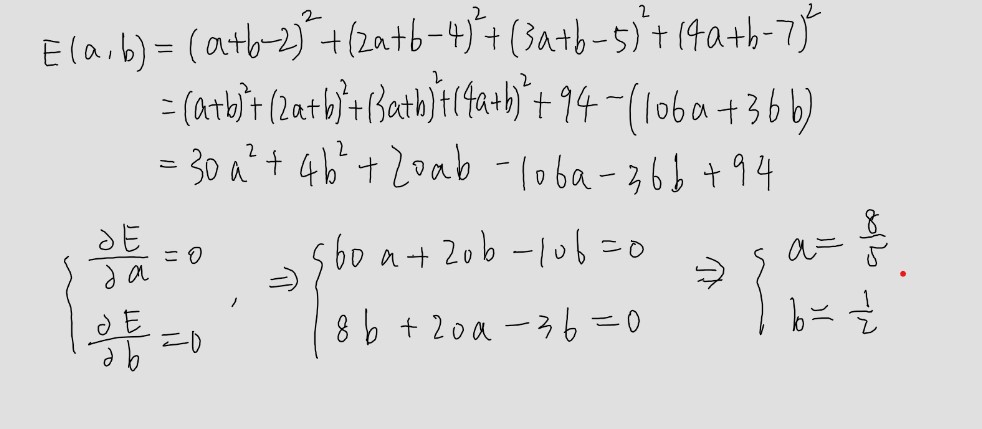 E(a,b) = (a+b-2)² + (2a+b-4)² + (3a+b-5)² + (4a+b-7)²
= (a+b)² + (2a+b)² + (3a+b)² + (4a+b)² + 94 - (106a + 36b)
= 30a² + 4b² + 20ab - 106a - 36b + 94
{ ∂E/∂a = 0 , ⇒ { 60a + 20b - 106 = 0 ⇒ { a = 8/5
∂E/∂b = 0 8b + 20a - 36 = 0 b = 1/2